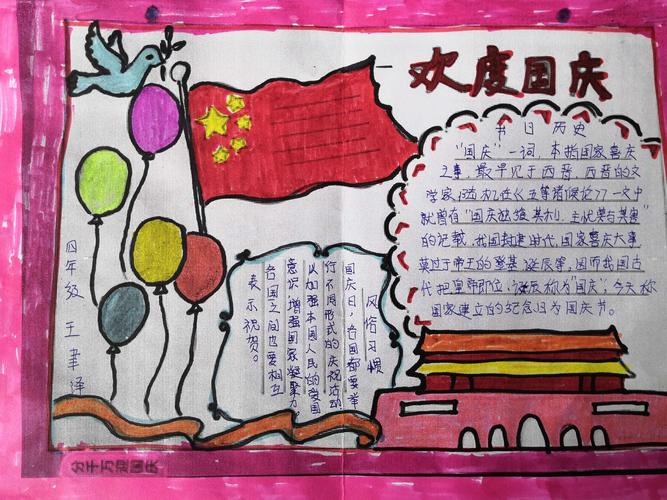 欢度国庆
节日历史
“国庆”一词，本指国家喜庆
之事，最早见于西晋。西晋的文
学家陆机在《五等诸侯论》一文中
就曾有“国庆独飨其利，主忧莫与其害”
的记载，我国封建时代，国家喜庆大事
莫过于帝王的登基、诞辰等，因而我国古
代把皇帝即位、诞辰称为“国庆”，今天称
国家建立的纪念日为国庆节。
风俗习惯
国庆日，各国都要举
行不同形式的庆祝活动
以加强本国人民的爱国
意识，增强国家凝聚力。
各国之间也要相互
表示祝贺。
四年级 王